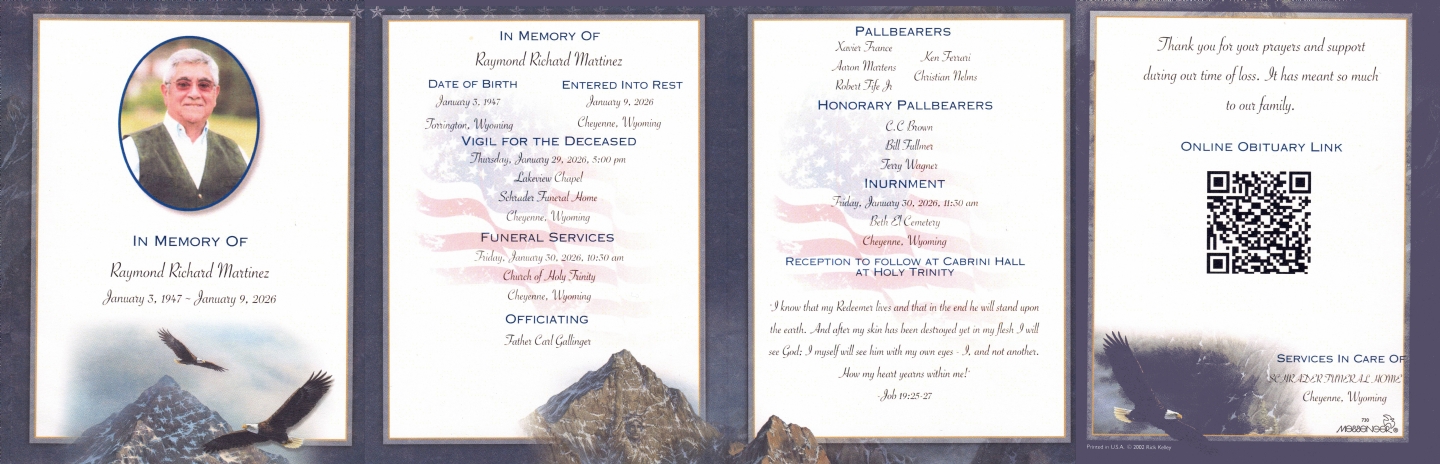 In Memory Of
Raymond Richard Martinez
January 3, 1947 ~ January 9, 2026
In Memory Of
Raymond Richard Martinez
Date of Birth
January 3, 1947
Torrington, Wyoming
Entered Into Rest
January 9, 2026
Cheyenne, Wyoming
Vigil for the Deceased
Thursday, January 29, 2026, 5:00 pm
Lakeview Chapel
Schrader Funeral Home
Cheyenne, Wyoming
Funeral Services
Friday, January 30, 2026, 10:30 am
Church of Holy Trinity
Cheyenne, Wyoming
Officiating
Father Carl Gallinger
Pallbearers
Xavier France
Aaron Martens
Robert Fife Jr
Ken Ferrari
Christian Nelms
Honorary Pallbearers
C.C Brown
Bill Fullmer
Terry Wagner
Inurnment
Friday, January 30, 2026, 11:30 am
Beth El Cemetery
Cheyenne, Wyoming
Reception to follow at Cabrini Hall
at Holy Trinity
"I know that my Redeemer lives and that in the end he will stand upon
the earth. And after my skin has been destroyed yet in my flesh I will
see God; I myself will see him with my own eyes - I, and not another.
How my heart yearns within me!"
-Job 19:25-27
Thank you for your prayers and support
during our time of loss. It has meant so much
to our family.
Online Obituary Link
Services In Care Of
SCHRADER FUNERAL HOME
Cheyenne, Wyoming
730
Messenger®
Printed in U.S.A. © 2002 Rick Kelley